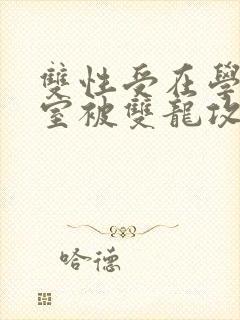 雙性受在學
室被雙龍攻
哈德